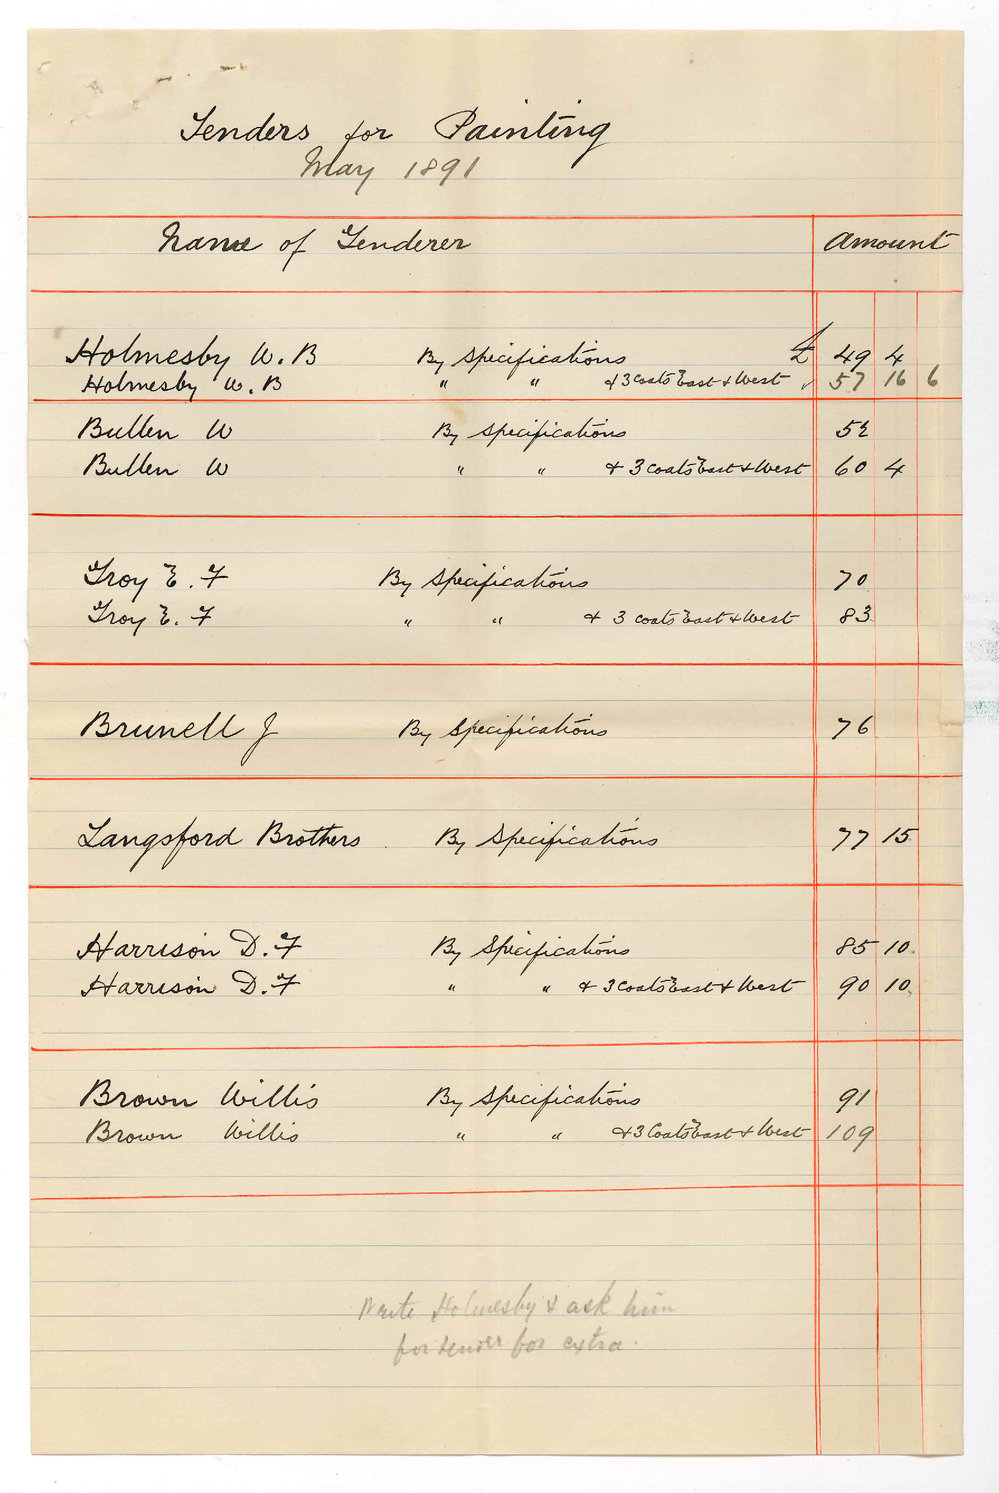 Tenders for Painting
May 1891
Name of Tenderer Amount
Holmesby W. B By Specifications £ 49 4
Holmesby W. B " " & 3 coats East & West ✓ 57 16 6
Bullen W By Specifications 52
Bullen W " " & 3 coats East & West 60 4
Troy E. F By Specifications 70
Troy E. F " " & 3 coats East & West 83
Brunell J By Specifications 76
Langsford Brothers By Specifications 77 15
Harrison D. F By Specifications 85 10
Harrison D. F " " & 3 Coats East & West 90 10
Brown Willis By Specifications 91
Brown Willis " " & 3 Coats East & West 109
Write Holmesby & ask him
for tender for extra.